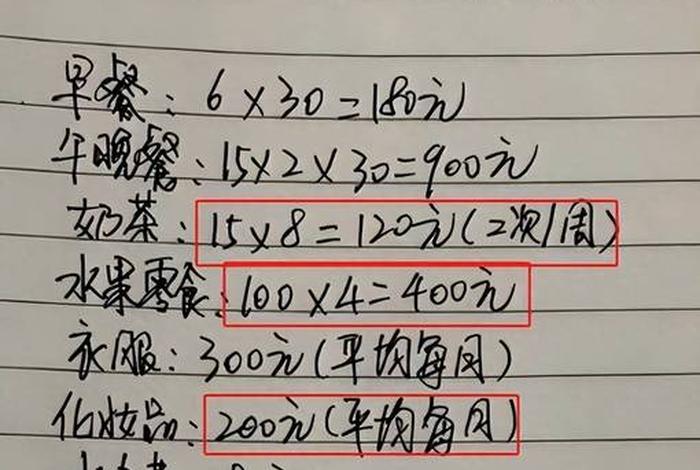 早餐：6×30=180元
午晚餐：15×2×30=900元
奶茶：15×8=120元(2次/周)
水果零食：100×4=400元
衣服：300元(平均每月)
化妆品：200元(平均每月)